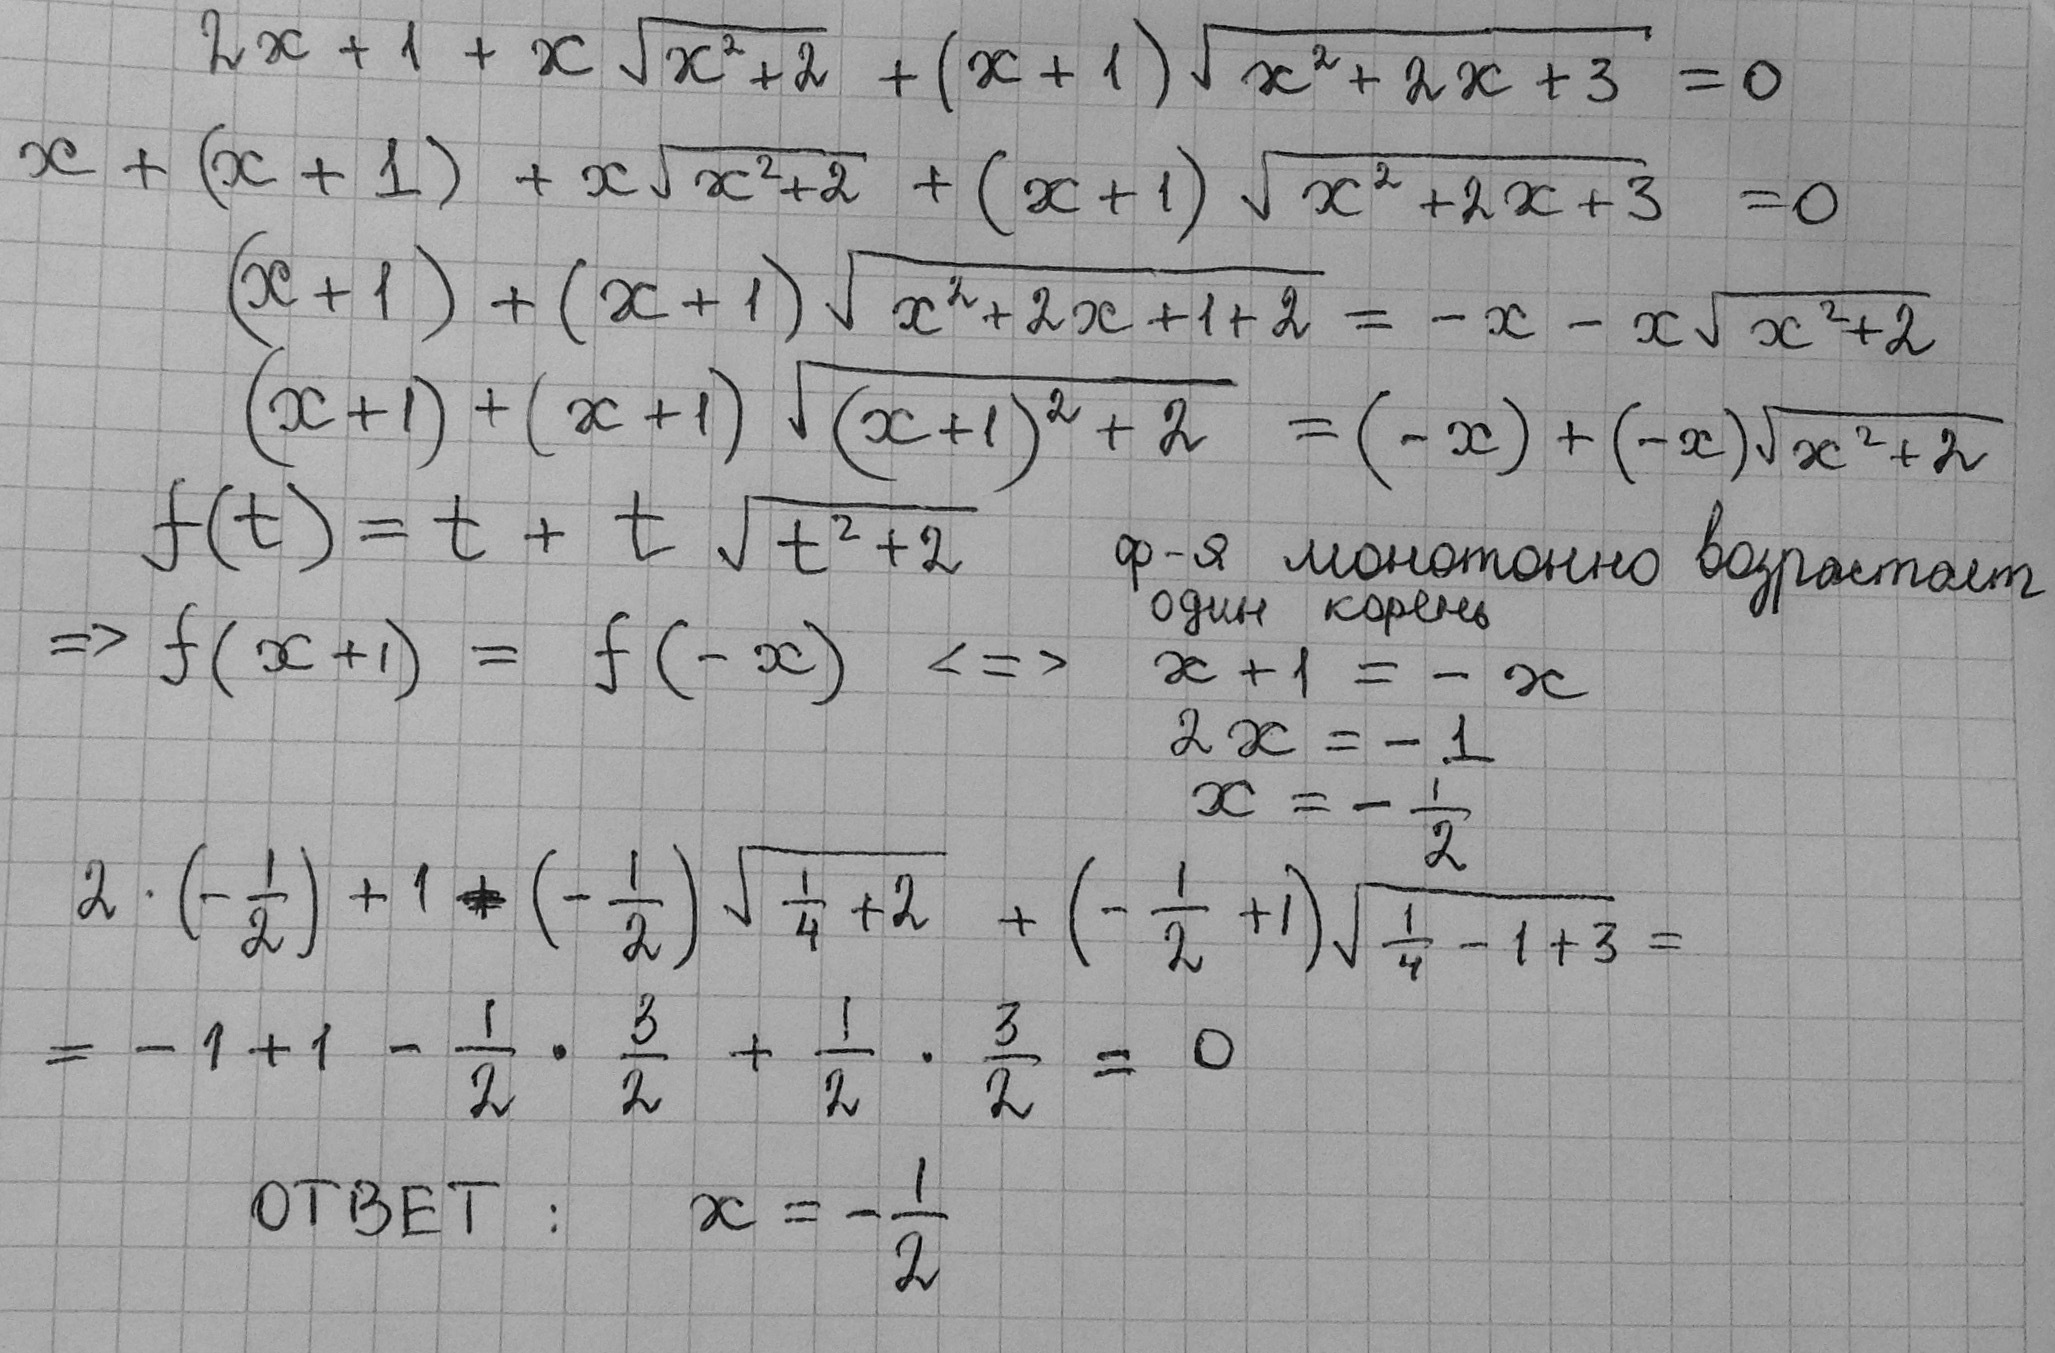 2x + 1 + x √(x² + 2) + (x + 1) √(x² + 2x + 3) = 0
x + (x + 1) + x √(x² + 2) + (x + 1) √(x² + 2x + 3) = 0
(x + 1) + (x + 1) √(x² + 2x + 1 + 2) = - x - x √(x² + 2)
(x + 1) + (x + 1) √((x + 1)² + 2) = (- x) + (- x) √(x² + 2)
f(t) = t + t √(t² + 2) ф-я монотонно возрастает
один корень
=> f(x + 1) = f(- x) <=> x + 1 = - x
2x = - 1
x = - 1/2
2 · (- 1/2) + 1 + (- 1/2) √(1/4 + 2) + (- 1/2 + 1) √(1/4 - 1 + 3) =
= - 1 + 1 - 1/2 · 3/2 + 1/2 · 3/2 = 0
ОТВЕТ : x = - 1/2